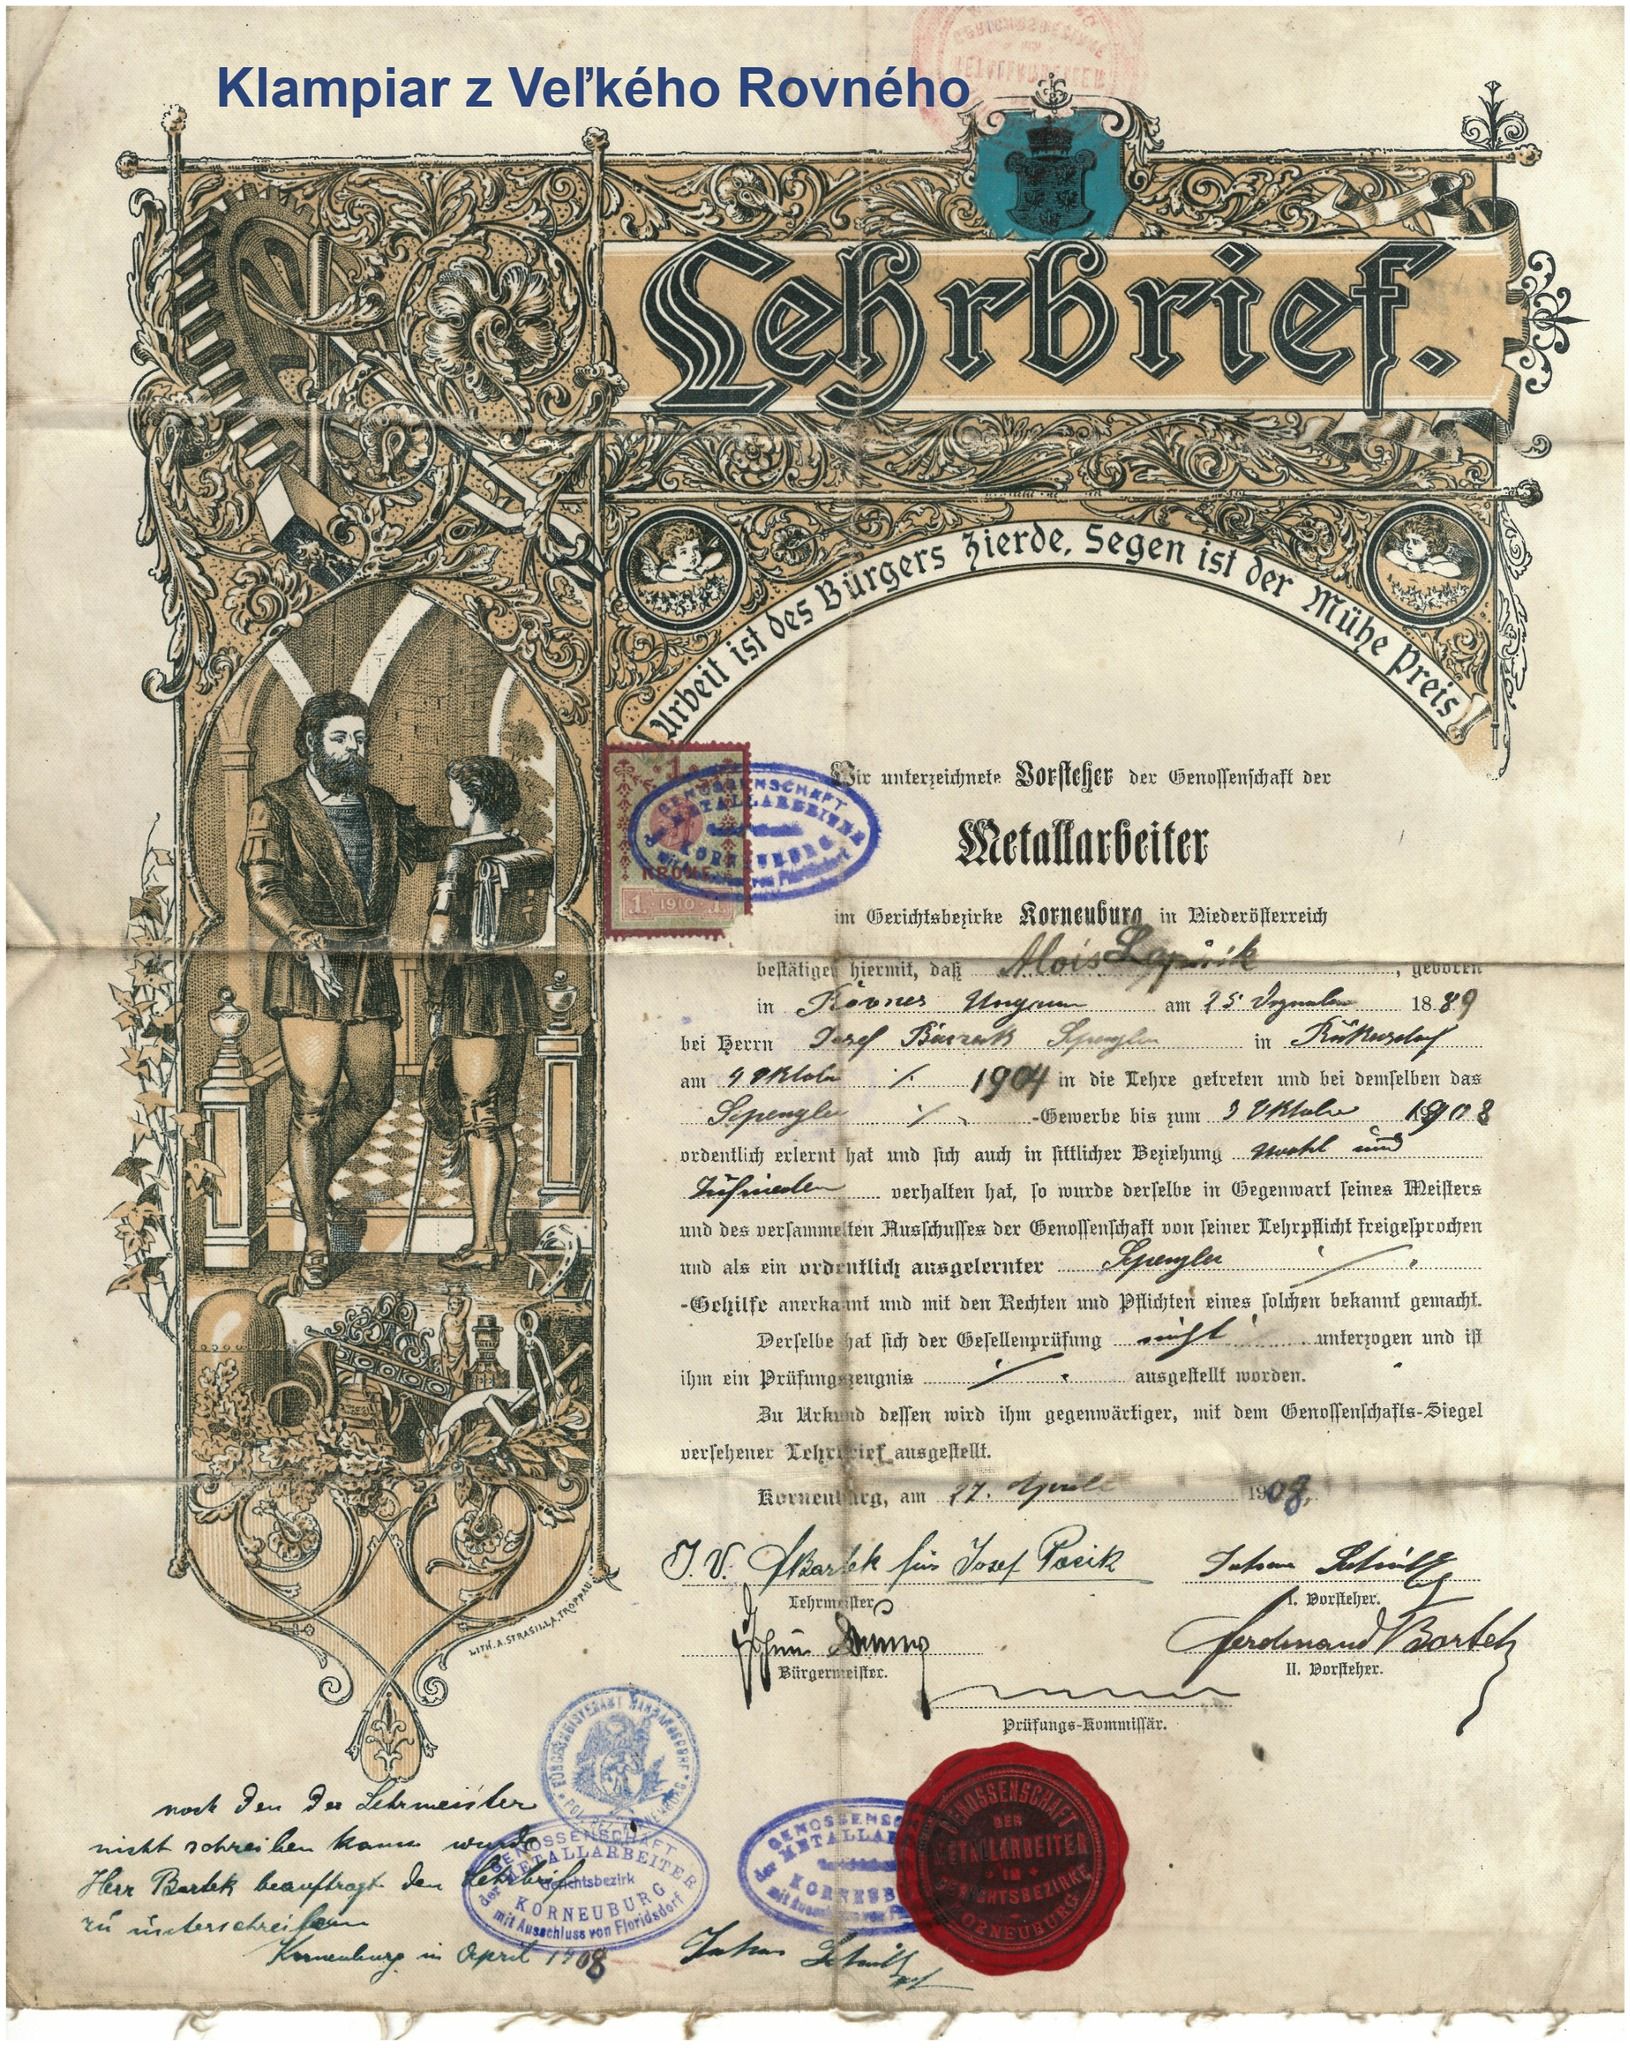 Klampiar z Veľkého Rovného
Lehrbrief.
Arbeit ist des Bürgers Zierde, Segen ist der Mühe Preis
Wir unterzeichnete Vorsteher der Genossenschaft der
Metallarbeiter
im Gerichtsbezirke Korneuburg in Niederösterreich
bestätigen hiermit, daß Alois , geboren
in Rovnes Ungarn am 25 1889
bei Herrn Josef Spengler in
am 1904 in die Lehre getreten und bei demselben das
Spengler -Gewerbe bis zum 3 1908
ordentlich erlernt hat und sich auch in sittlicher Beziehung wohl und
zufrieden verhalten hat, so wurde derselbe in Gegenwart seines Meisters
und des versammelten Ausschusses der Genossenschaft von seiner Lehrpflicht freigesprochen
und als ein ordentlich ausgelernter Spengler
-Gehilfe anerkannt und mit den Rechten und Pflichten eines solchen bekannt gemacht.
Derselbe hat sich der Gesellenprüfung nicht unterzogen und ist
ihm ein Prüfungszeugnis ausgestellt worden.
Zu Urkund dessen wird ihm gegenwärtiger, mit dem Genossenschafts-Siegel
versehener Lehrbrief ausgestellt.
Korneuburg, am 27. 1908.
J. V. Bartek für Josef
Lehrmeister
I. Vorsteher.
Bürgermeister.
Ferdinand
II. Vorsteher.
Prüfungs-Kommissär.
LITH. A. STRASILLA, TROPPAU
1
KRONE
1 · 1910 · 1
GENOSSENSCHAFT
der METALLARBEITER
Gerichtsbezirk
KORNEUBURG
mit Ausschluss von Floridsdorf
GENOSSENSCHAFT
DER
METALLARBEITER
IM
GERICHTSBEZIRKE
KORNEUBURG
der Lehrmeister
nicht schreiben kann wurde
Herr Bartek beauftragt den Lehrbrief
zu unterschreiben
Korneuburg in April 1908